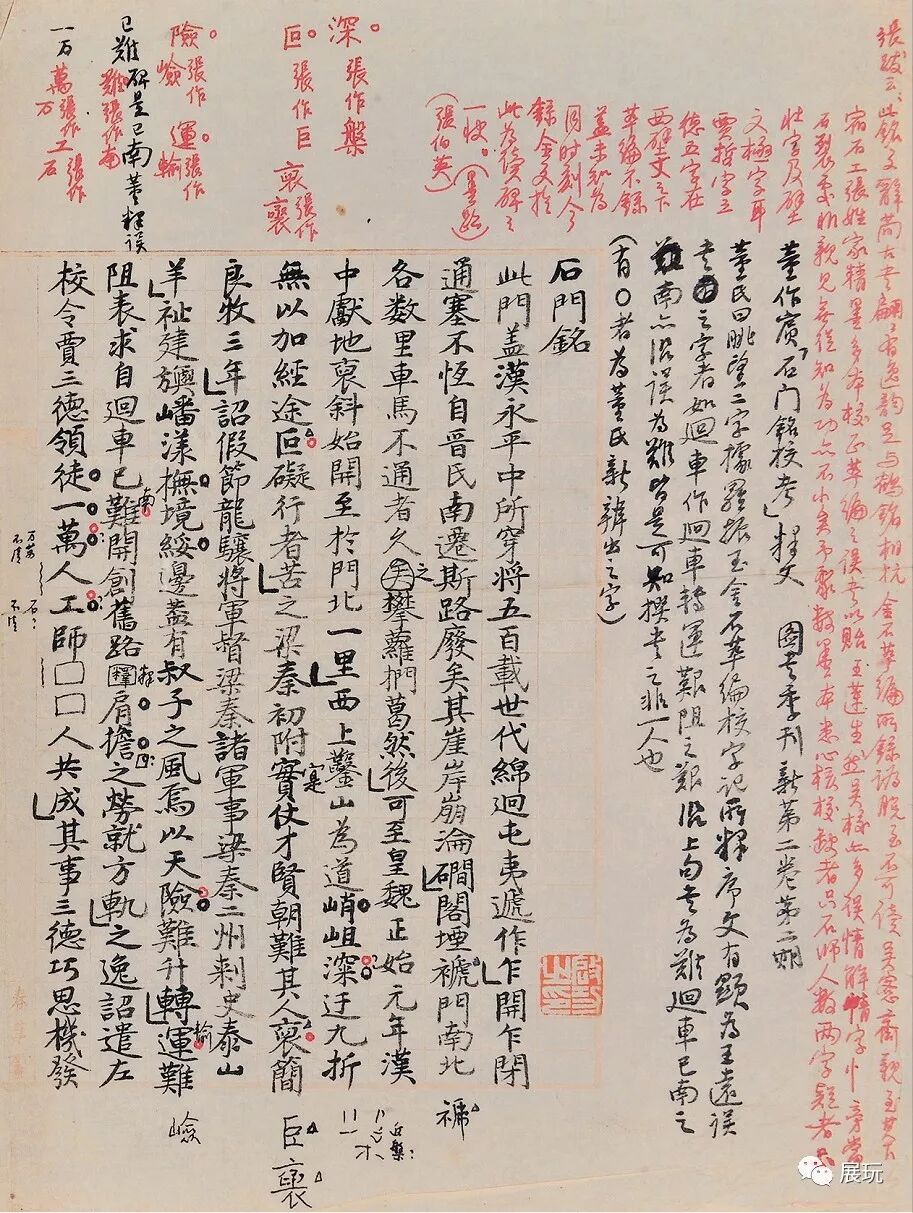 張跋云：此銘文辭尚古書翩翩有逸韻足与鶴銘相抗金石萃編所錄訛脫至不可讀吳愙齋親至其下
宿石工張姓家精墨多本校正萃編之誤書以貽王蓮生然吳校亦多误
石裂處非親見無從知為功亦不小矣
壯字及壁
文極字耳
賈哲字三
德五字在
西壁文之下
萃編不錄
蓋未知為
同时刻今
錄全文於
此为讀碑之
一快。（墨跋）
（張伯英）
董作賓「石门銘校考」釋文　圖書季刊新第二卷第二期
董氏曰眺望二字據羅振玉金石萃編校字记所釋序文有顯为王遠误
書之字者如迴車作迴車轉運艱阻之艱沿上句書為難迴車已南之
南亦沿误為難皆是可知撰書之非一人也
（有〇者为董氏新辨出之字）
深。張作槃
叵。張作巨 褒張作襃
險張作嶮 運。張作輸
已難碑是已南董釋误
難張作南
一百萬張作万 工張作石
石門銘
此門盖漢永平中所穿將五百載世代綿迴屯夷遞作乍開乍閉
通塞不恆自晉氏南遷斯路廢矣其崖岸崩淪磵閣堙褫門南北
各数里車馬不通者久矣攀蘿捫葛然後可至皇魏正始元年漢
中獻地褒斜始開至於門北一里西上鑿山為道峭岨深迂九折
無以加經途叵礙行者苦之梁秦初附實仗才賢朝難其人褒簡
良牧三年詔假節龍驤將軍督梁秦諸軍事梁秦二州刺史泰山
羊祉建旟嶓漾撫境綏邊蓋有叔子之風焉以天險難升轉運難
阻表求自迴車已難開創舊路釋肩擔之勞就方軌之逸詔遣左
校令賈三德領徒一萬人工師□□人共成其事三德巧思機發
南
之
寔
輸
褫
槃
巨 襃
嶮
展玩